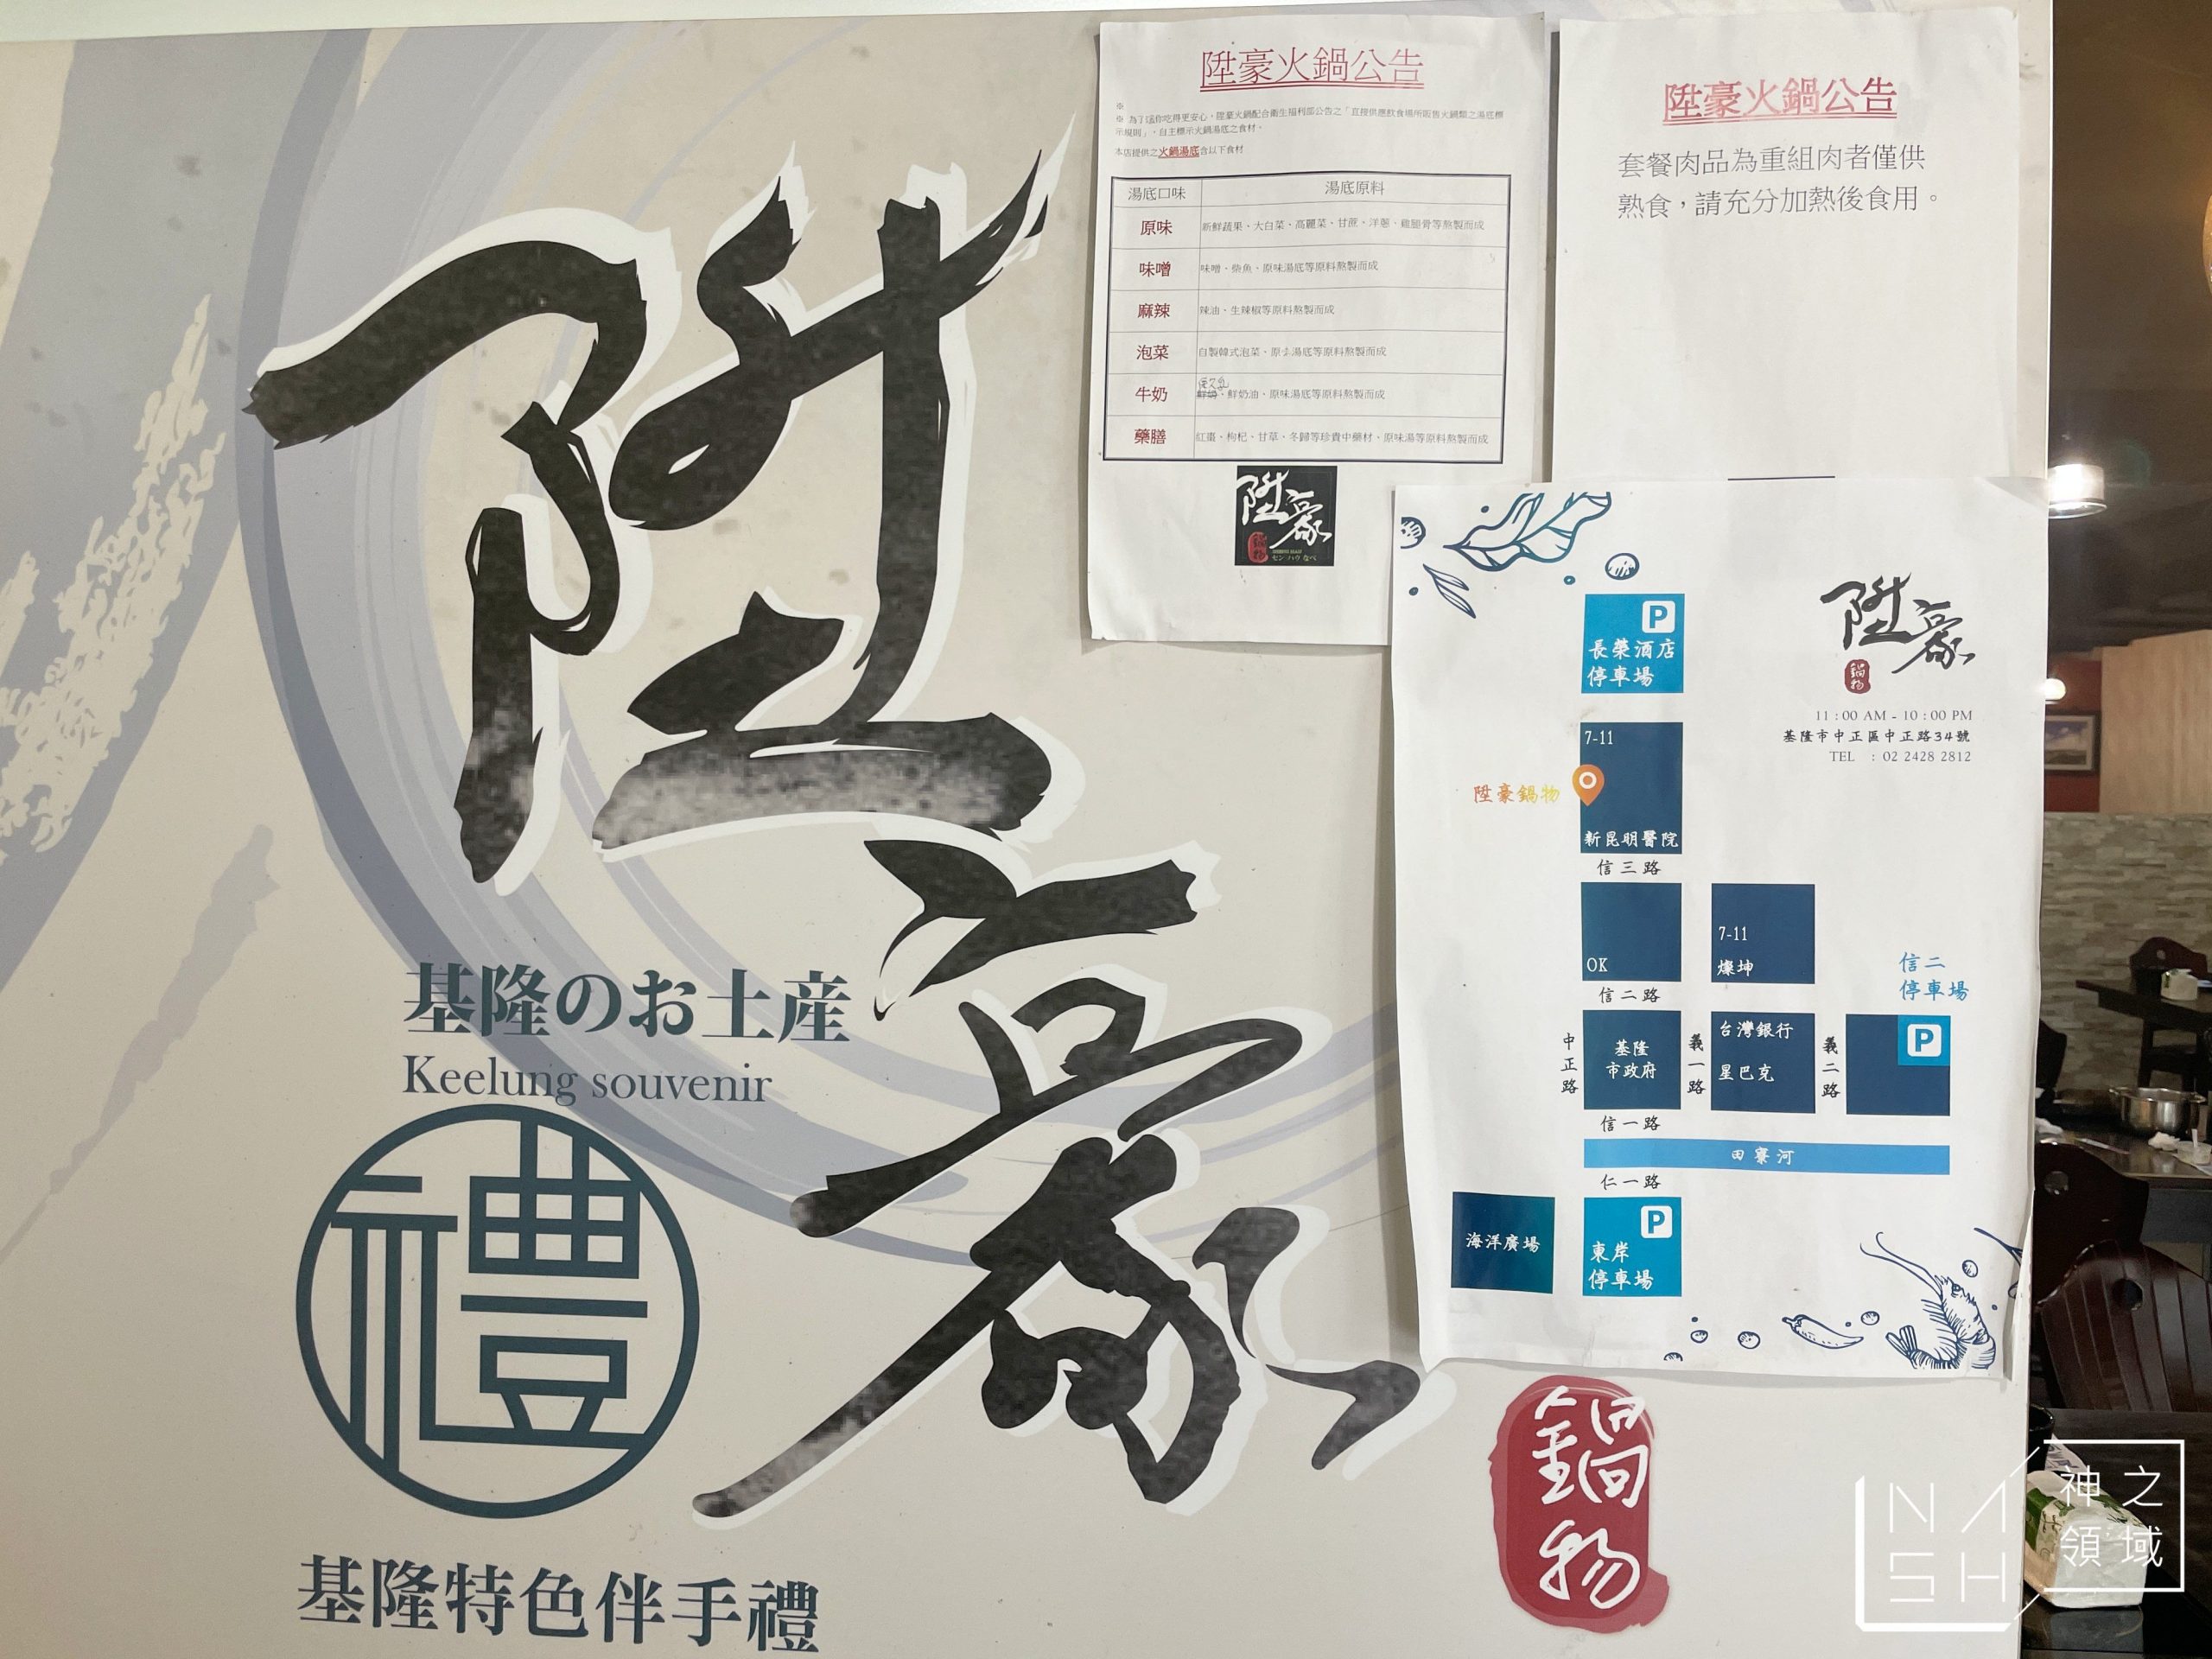 陞豪
鍋物
基隆のお土産
Keelung souvenir
禮
基隆特色伴手禮
陞豪火鍋公告
※
※ 為了讓你吃得更安心，陞豪火鍋配合衛生福利部公告之「直接供應飲食場所販售火鍋類之湯底標
示規則」，自主標示火鍋湯底之食材。
本店提供之火鍋湯底含以下食材
湯底口味 湯底原料
原味 新鮮蔬果、大白菜、高麗菜、甘蔗、洋蔥、雞腿骨等熬製而成
味噌 味噌、柴魚、原味湯底等原料熬製而成
麻辣 辣油、生辣椒等原料熬製而成
泡菜 自製韓式泡菜、原味湯底等原料熬製而成
保久乳
牛奶 、鮮奶油、原味湯底等原料熬製而成
藥膳 紅棗、枸杞、甘草、冬歸等珍貴中藥材、原味湯等原料熬製而成
陞豪
鍋物
セン ハウ なべ
陞豪火鍋公告
套餐肉品為重組肉者僅供
熟食，請充分加熱後食用。
陞豪
鍋物
11:00 AM - 10:00 PM
基隆市中正區中正路34號
TEL : 02 2428 2812
P
長榮酒店
停車場
7-11
陞豪鍋物
新昆明醫院
信三路
OK
7-11
燦坤
信二
停車場
P
信二路
中正路
基隆
市政府
義一路
台灣銀行
星巴克
義二路
信一路
田寮河
仁一路
海洋廣場
P
東岸
停車場
NASH
神之
領域